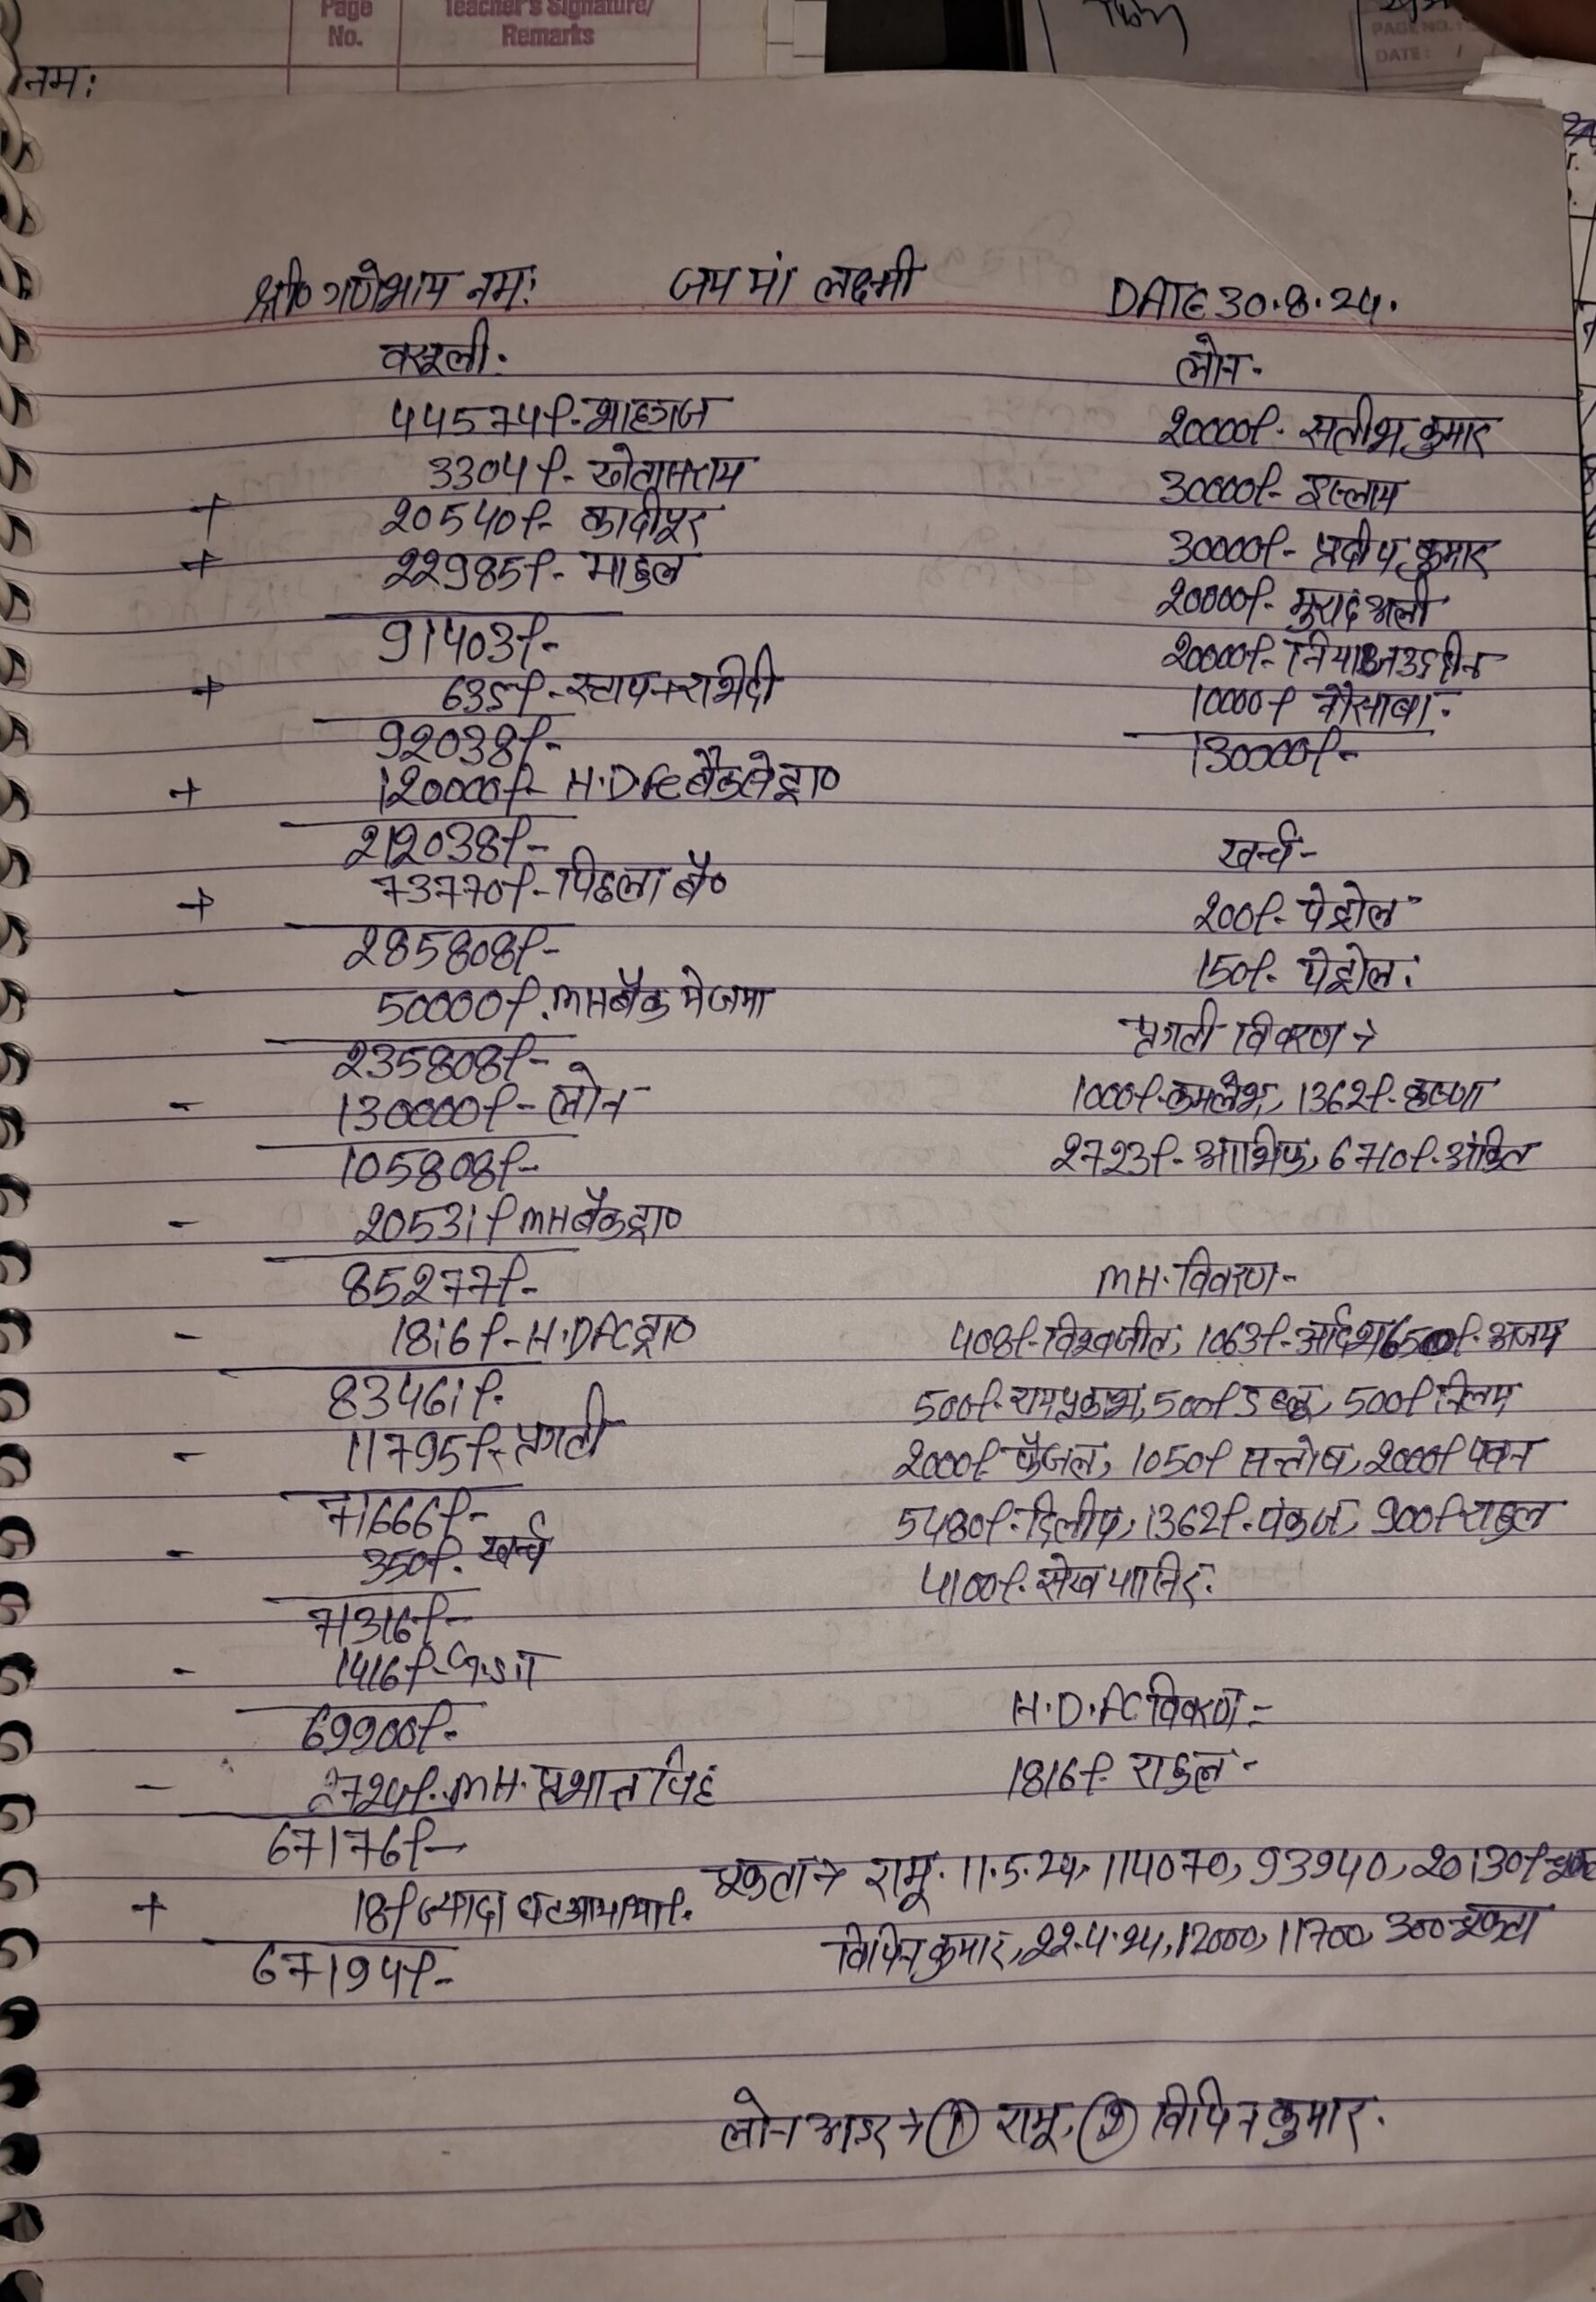 Page No.
Teacher's Signature/ Remarks
PAGE NO.
DATE: / /
नमः
श्री० गणेशाय नमः जय मां लक्ष्मी DATE 30.8.24.
वसूली.
44574/- शाहगज
3304/- खेतासराय
+ 20540/- कादीपुर
+ 22985/- माहुल
91403/-
+ 635/- स्टाम्प + राशीदी
92038/-
+ 120000/- H.D.FC बैंक से द्वा०
212038/-
+ 73770/- पिछला बै०
285808/-
- 50000/- MH बैंक मे जमा
235808/-
- 130000/- लोन
105808/-
- 20531/- MH बैंक द्वा०
85277/-
- 1816/- H.DFC द्वा०
83461/-
- 11795/- प्रगती
71666/-
- 350/- खर्च
71316/-
- 1416/-
69900/-
- 2724/- MH. प्रशान्त सिंह
67176/-
+ 18/- ज्यादा
67194/-
लोन-
20000/- सतीश कुमार
30000/- इस्लाम
30000/- प्रदीप कुमार
20000/- मुराद अली
20000/- नियाजउद्दीन
10000/- नौसाबा.
130000/-
खर्च-
200/- पेट्रोल
150/- पेट्रोल.
प्रगती विवरण →
1000/- कमलेश, 1362/- कृष्णा
2723/- आशिफ, 6710/- अंकित
MH. विवरण-
408/- विश्वजीत, 1063/- आदेश, 650/- अजय
500/- रामप्रकाश, 500/- डब्लू, 500/- निलम
2000/- फैजल, 1050/- सन्तोष, 2000/- पवन
5480/- दिलीप, 1362/- पंकज, 900/- राहुल
4100/- सेख
H.D.FC विवरण-
1816/- राहुल-
चुकता → रामू. 11.5.24, 114070, 93940, 20130/-
विपिन कुमार, 22.4.24, 12000, 11700, 300 चुकता
लोन आडर → ① रामू, ② विपिन कुमार.